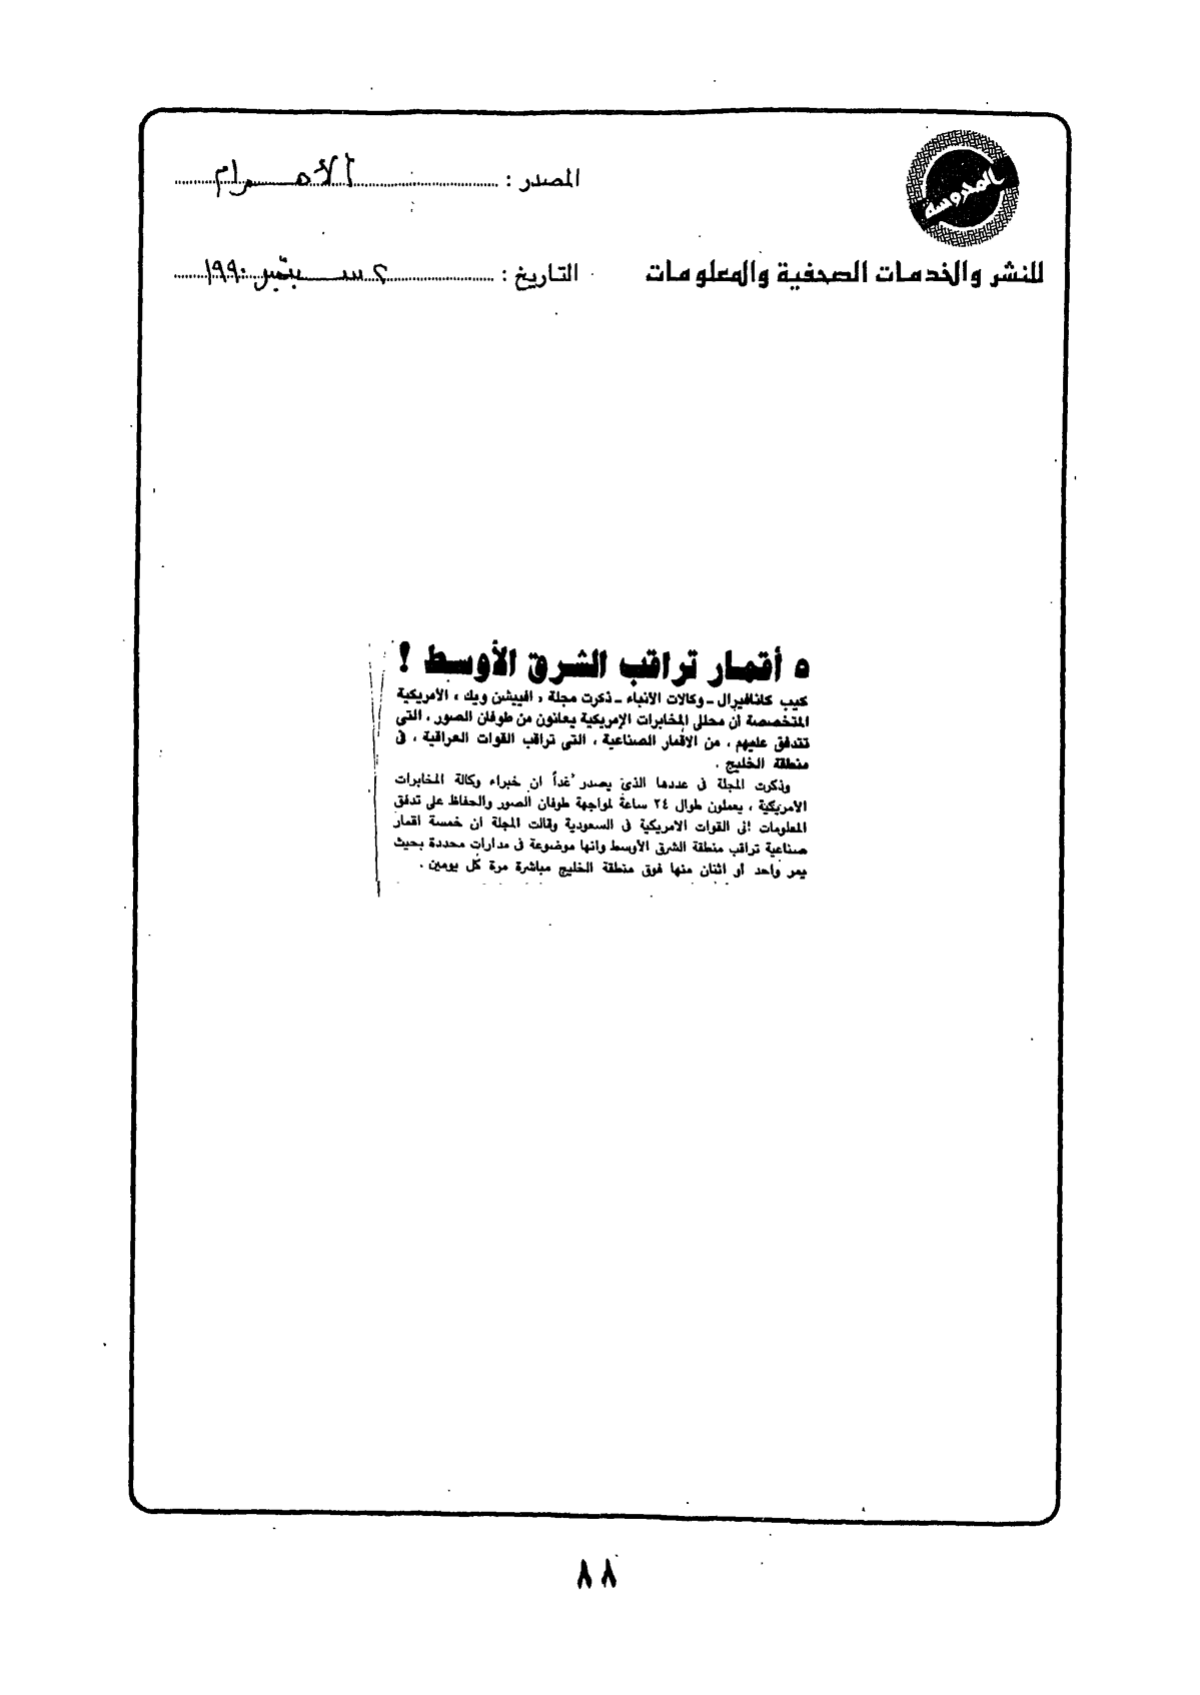 المحروسة
المصدر : الأهرام
للنشر والخدمات الصحفية والمعلومات
التاريخ : ٢ سبتمبر ١٩٩٠
٥ أقمار تراقب الشرق الأوسط !
كيب كانافيرال ـ وكالات الانباء ـ ذكرت مجلة ، افييشن ويك ، الأمريكية
المتخصصة أن محللى المخابرات الإمريكية يعانون من طوفان الصور ، التى
تتدفق عليهم ، من الاقمار الصناعية ، التى تراقب القوات العراقية ، فى
منطقة الخليج .
وذكرت المجلة فى عددها الذى يصدر غداً ان خبراء وكالة المخابرات
الامريكية ، يعملون طوال ٢٤ ساعة لمواجهة طوفان الصور والحفاظ على تدفق
المعلومات إلى القوات الامريكية فى السعودية وقالت المجلة ان خمسة اقمار
صناعية تراقب منطقة الشرق الأوسط وانها موضوعة فى مدارات محددة بحيث
يمر واحد أو اثنان منها فوق منطقة الخليج مباشرة مرة كل يومين .
٨٨